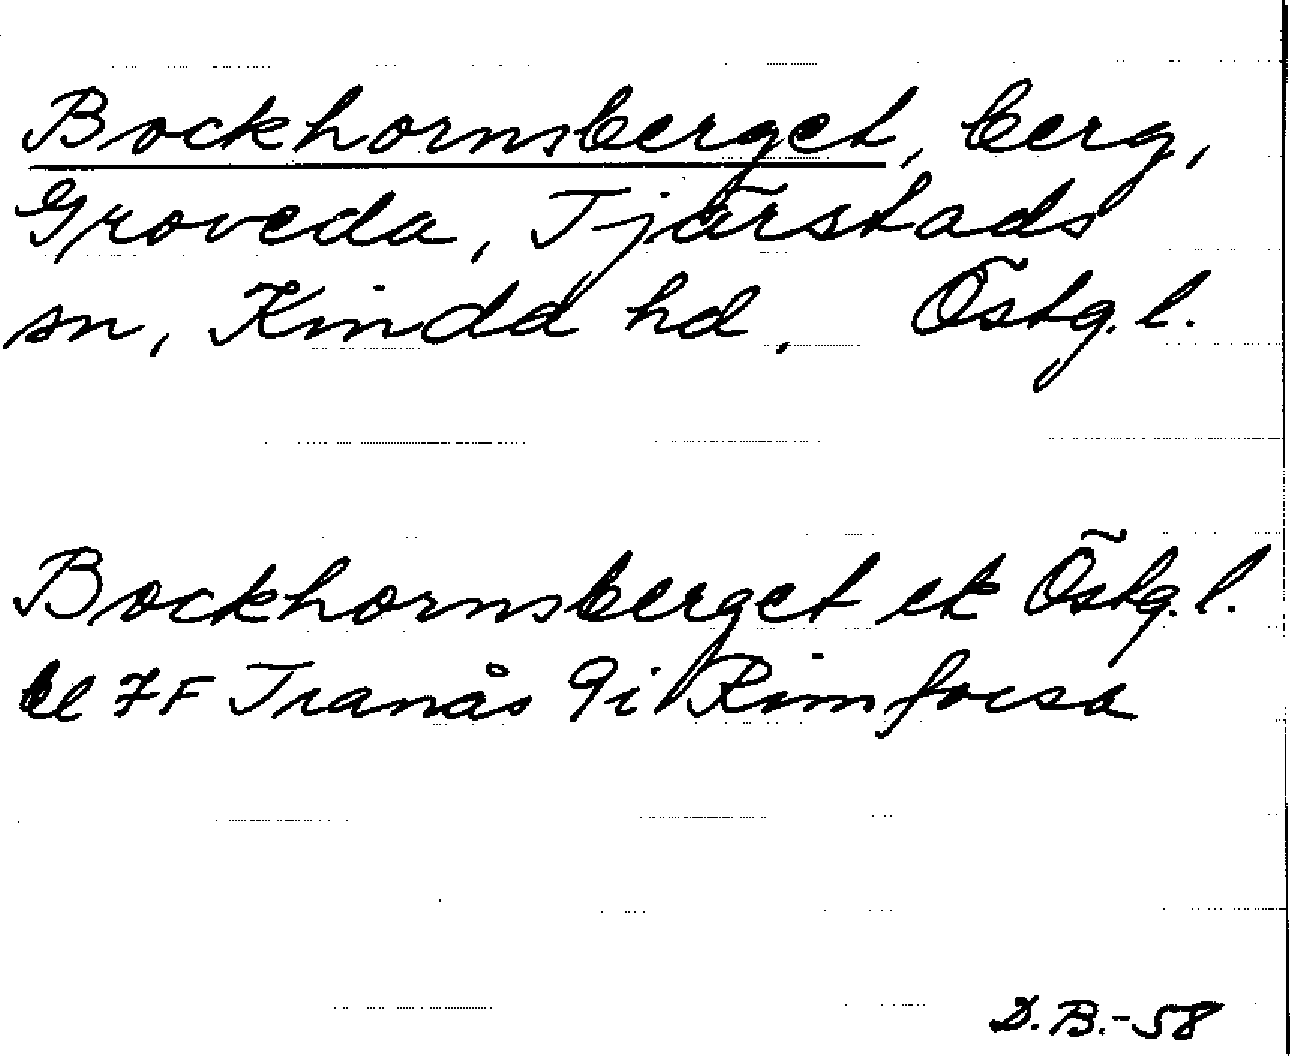 Bockhornsberget, berg,
Groveda, Tjärstads
sn, Kinda hd. Östg. l.
Bockhornsberget ek Östg. l.
bl 7F Tranås 9i Rimforsa
D.B.-58